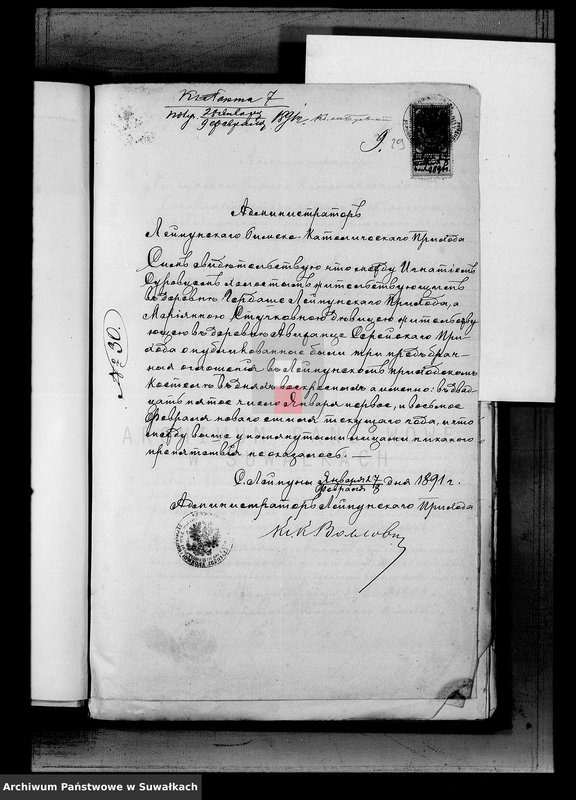 Къ Акта 7
получ. 28 января
9 февраля 1891 г.
9. 29
Администраторъ
Лейпунскаго Римско-Католическаго Прихода
Симъ свидѣтельствую что между Игнатіемъ
холостымъ жительствующимъ
въ деревнѣ Лейпунскаго Прихода, а
Маріянною дѣвицею жительству
ющею въ деревнѣ Серейскаго При-
хода опубликованные были три предбрач-
ныя оглашенія въ Лейпунскомъ приходскомъ
костелѣ въ дняхъ воскресныхъ а именно: въ двад-
цать пятое число Января первое, и восьмое
Февраля новаго стиля текущаго года, и что
между выше упомянутыми лицами никакого
препятствія не оказалось. —
С. Лейпуны Января 27
Февраля 8 дня 1891 г.
Администраторъ Лейпунскаго Прихода
№ 30.
ARCHIWUM PAŃSTWOWE
W SUWAŁKACH
Archiwum Państwowe w Suwałkach